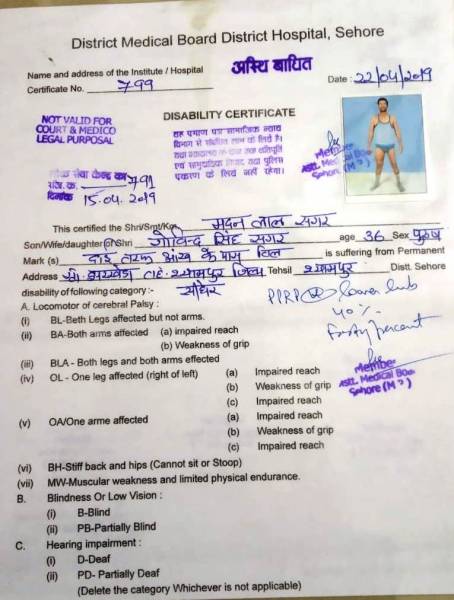 District Medical Board District Hospital, Sehore
अस्थि बाधित
Name and address of the Institute / Hospital
Certificate No. 799
Date : 22/04/2019
NOT VALID FOR
COURT & MEDICO
LEGAL PURPOSAL
DISABILITY CERTIFICATE
यह प्रमाण पत्र सामाजिक न्याय
विभाग से संबंधित लाभ के लिये है।
तथा न्यायालय के
एवं सामुदायिक विवाद तथा पुलिस
प्रकरण के लिये नहीं रहेगा।
Member
Astt. Medical Boa
Sehore (M
लोक सेवा केन्द्र का 791
पंजी. क्र.
दिनांक 15.04.2019
This certified the Shri/Smt/Km. मदन लाल सगर
Son/Wife/daughter of Shri गोविन्द सिंह सगर age 36 Sex पुरुष
Mark (s) दाई तरफ आंख के पास तिल is suffering from Permanent
Address श्यामपुर Tehsil श्यामपुर Distt. Sehore
disability of following category :- सीहोर
PPRP lower limb
40%
Forty percent
A. Locomotor of cerebral Palsy :
(i) BL-Beth Legs affected but not arms.
(ii) BA-Both arms affected (a) impaired reach
(b) Weakness of grip
(iii) BLA - Both legs and both arms effected
Member
Astt. Medical Boa
Sehore (M
(iv) OL - One leg affected (right of left) (a) Impaired reach
(b) Weakness of grip
(c) Impaired reach
(v) OA/One arme affected (a) Impaired reach
(b) Weakness of grip
(c) Impaired reach
(vi) BH-Stiff back and hips (Cannot sit or Stoop)
(vii) MW-Muscular weakness and limited physical endurance.
B. Blindness Or Low Vision :
(i) B-Blind
(ii) PB-Partially Blind
C. Hearing impairment :
(i) D-Deaf
(ii) PD- Partially Deaf
(Delete the category Whichever is not applicable)